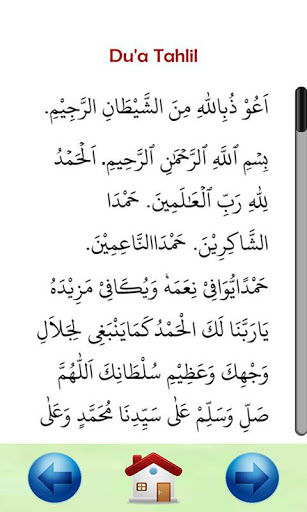 Du'a Tahlil
اَعُوْ ذُبِاللهِ مِنَ الشَّيْطَانِ الرَّجِيْمِ.
بِسْمِ اللَّهِ الرَّحْمَٰنِ الرَّحِيمِ. اَلْحَمْدُ
لِلهِ رَبِّ الْعَـٰلَمِينَ. حَمْدَا
الشَّاكِرِيْنَ. حَمْدَاالنَّاعِمِيْنَ.
حَمْدًايُّوَافِىْ نِعَمَهٗ وَيُكَافِىْ مَزِيْدَهُ
يَارَبَّنَا لَكَ الْحَمْدُ كَمَايَنْبَغِى لِجَلاَلِ
وَجْهِكَ وَعَظِيْمِ سُلْطَانِكَ اَللّٰهُمَّ
صَلِّ وَسَلِّمْ عَلٰى سَيِّدِنَا مُحَمَّدٍ وَعَلٰى